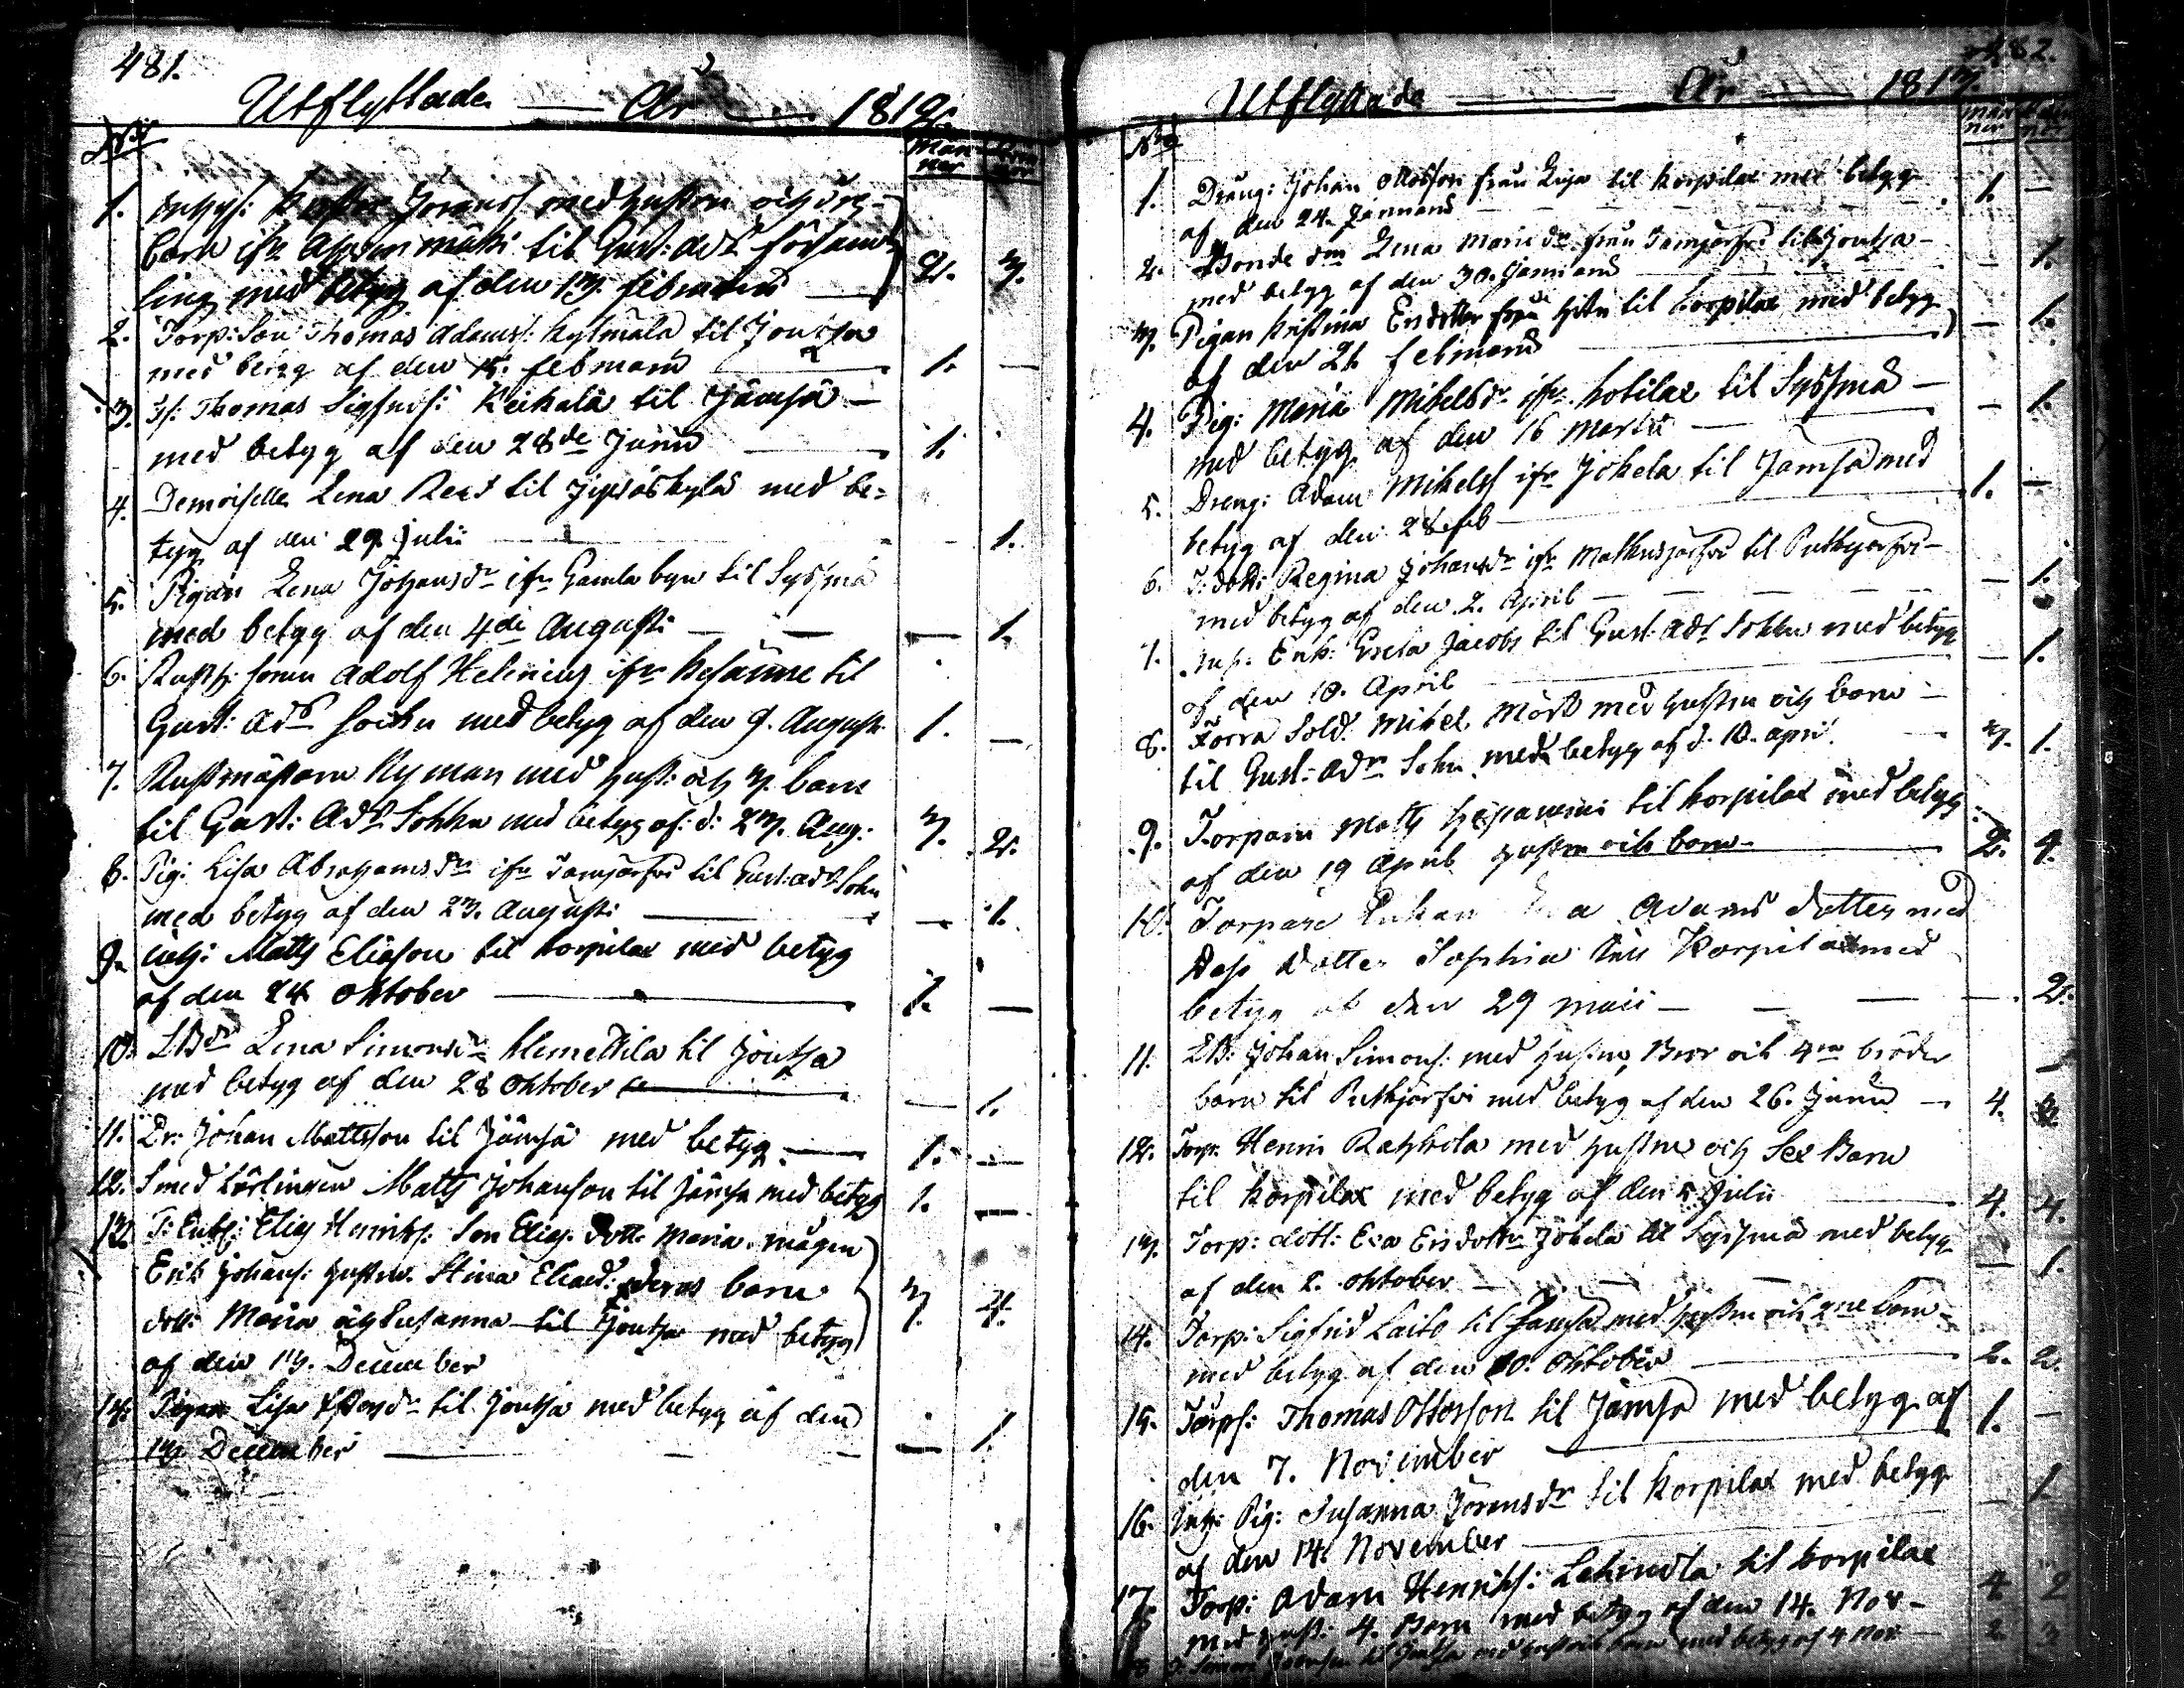 481.
Utflyttade År 1812.
No
Männer
1. Inhys: Jöransson med hustru och
barn ifr til Gust: Ad: försam
ling med betyg af den 13. februarii 2. 3.
2. Torp: Son Thomas Adamss: Kylmälä til Joutsa
med betyg af den 15. februarii 1. —
3. Is: Thomas Sigfrids: Keikala til Jämsä —
med betyg af den 28de Junii 1.
4. Demoiselle Lena til Jyväskylä med be=
tyg af den 29. Julii — 1.
5. Pigan Lena Johansdr ifr Gamla byn til Sysmä
med betyg af den 4de Augusti — — 1.
6. Adolf Helenius ifr til
Gust: Ads Sockn med betyg af den 9. August. 1. —
7. Rustmästaren Nyman med hust: och 3. barn
til Gust: Ads Sokkn med betyg af: d: 23. Aug: 3. 2.
8. Pig: Lisa Abrahamsdr ifr Tamjärfvi til Gust: ads Sokn
med betyg af den 23. Augusti — — 1.
9. Inh: Matts Eliasson til Korpilax med betyg
af den 24 Oktober — 1. —
10. Lena Simonsdr Klemettilä til Joutsa
med betyg af den 28 Oktober — 1.
11. Dr: Johan Mattsson til Jämsä med betyg — 1. —
12. Smed Lärlingen Matts Johansson til Jämsä med betyg 1. —
13. Elias Henriks: Son Elias. Dott: Maria. mågen
Erik Johans: hustru. Stina Eliaed: deras barn
dott: Maria och Susanna til Joutsa med betyg 3. 4.
af den 13. December
14. Pigan Lisa til Joutsa med betyg af den
13 December — — 1.
482.
Utflyttade — År — 1813.
No
Männer
1. Dräng: Johan Ottosson från til Korpilax med betyg
af den 24. Januarii — 1. —
2. Bonde drn Lena Mariedr från Tamjärfvi til Joutsa —
med betyg af den 30. Januarii — 1.
3. Pigan Kristina Ersdotter från til Korpilax med betyg
af den 21. februarii — 1.
4. Pig: Maria Mikelsdr ifr. til Syssmä —
med betyg af den 16 Martii — 1.
5. Dreng: Adam Mikelss ifr Jokela til Jämsä med
betyg af den 28. feb — 1. —
6. Regina Johansdr ifr til Putkjärfvi —
med betyg af den 2. April — 1.
7. Enk: Greta Jacobs til Gust: Ads Sokkn med betyg
af den 10. April — 1.
8. Förra Sold: Mikel Mört med hustru och barn —
til Gust: Ads Sokn med betyg af d. 10. April — 3. 1.
9. Torparn Matts til Korpilax med betyg
af den 19 April hustru och barn — 2. 4.
10. Torpare Enkan Adams dotter med
dess dotter Sophia till Korpilax med
betyg af den 29 Maii — — — 2.
11. Johan Simons: med hustru, Bror och 4ra bröder
barn til Putkjärfvi med betyg af den 26. Junii — 4.
12. Torp: Henric med hustru och Sex Barn
til Korpilax med betyg af den 5 Julii — 4. 4.
13. Torp: dott: Eva Ersdotter Jokela til Syssmä med betyg
af den 2. Oktober — — 1.
14. Torp: Sigfrid Laito til Jämsä med hustru och 2ne barn —
med betyg af den 10. Oktober — 2. 2.
15. Torps: Thomas Ottosson til Jämsä med betyg af
den 7. November 1. —
16. Inh: Pig: Susanna Jöransdr til Korpilax med betyg
af den 14. November — 1
17. Torp: Adam Henriks: til Korpilax
med hust: 4. Barn med betyg af den 14. Nov — 4 2
18. Simon til Joutsa med hustru och barn med betyg af 4 Nov — 2. 3